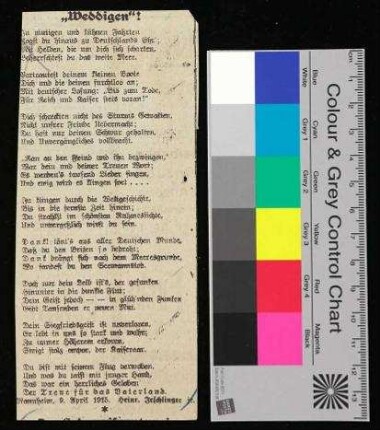 „Weddigen"!
Zu mutigen und kühnen Fahrten
Zogst du hinaus zu Deutschlands Ehr';
Mit Helden, die um dich sich scharten,
das weite Meer.
Vertrautest deinem kleinen Boote
Und dich die deinen furchtlos an;
Mit deutscher Losung: „Bis zum Tode,
Für Reich und Kaiser stets voran!"
Dich schreckten nicht des Sturms Gewalten,
Nicht unsrer Feinde Uebermacht;
Du hast nur deinen Schwur gehalten,
Und Unvergängliches vollbracht.
„Ran an den Feind und ihn bezwingen,"
War dein und deiner Treuen Wort;
Es werden's tausend Lieder singen,
Und ewig wird es klingen fort . . . .
Zu klingen durch die Weltgeschichte,
Bis in die fernste Zeit hinein;
Du strahlst im schönsten Ruhmeslichte,
Und unvergeßlich wirst du sein.
Dank tönt's aus aller Deutschen Munde,
Daß du den Briten so bedroht;
Dank dringt sich nach dem Meeresgrunde,
Wo fandest du den Seemannstod.
Doch nur dein Leib ist's, der gesunken
Hinunter in die dunkle Flut;
Dein Geist jedoch — — in glüh'nden Funken
Gibt Tausenden er neuen Mut.
Dein Siegfriedsgeist ist unverloren,
Er lebt in uns so stark und wahr;
Zu immer Höherem erkoren,
Steigt stolz empor, der Kaiseraar.
Du bist mit seinem Flug verwoben,
Und was du leist mit junger Hand,
Das war ein herrliches Geloben
Der Treue für das Vaterland.
Mannheim, 9. April 1915. Heinr.
*
Colour & Grey Control Chart
Blue Cyan Green Yellow Red Magenta
White Grey 1 Grey 2 Grey 3 Grey 4 Black
cm 1 2 3 4 5 6 7 8 9 10 11 12 13